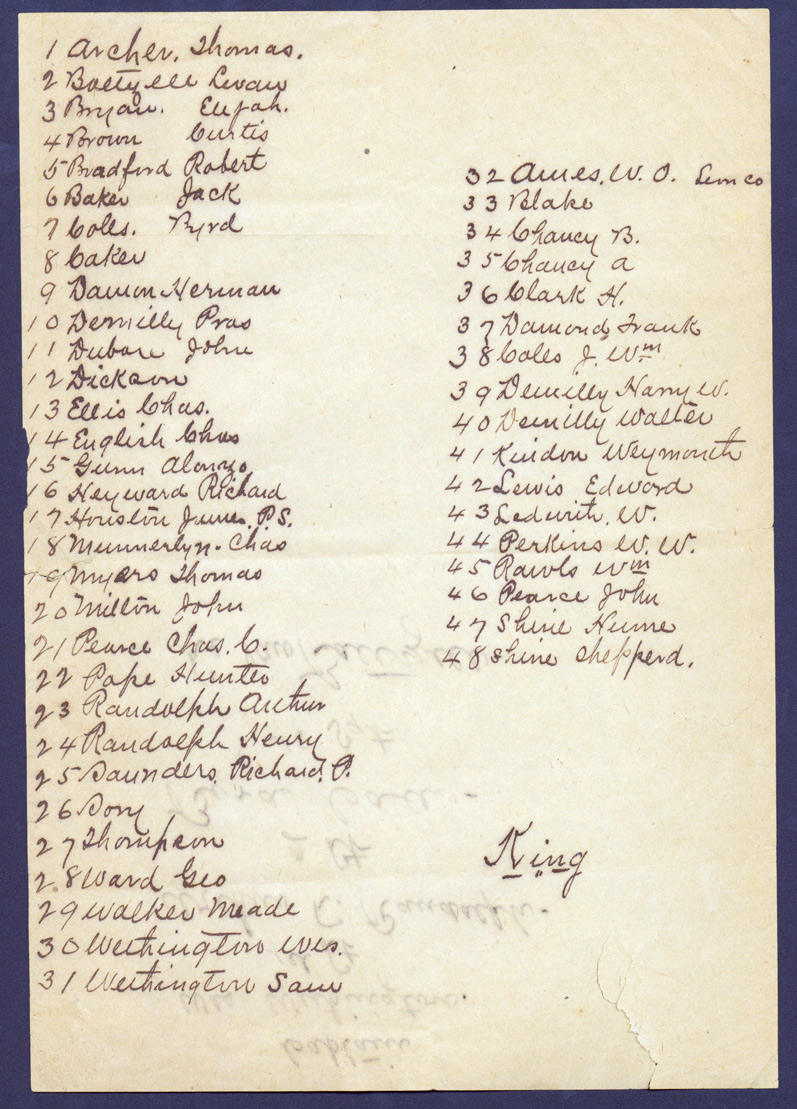 1 Archer, Thomas.
2 Levau
3 Bryan. Elijah.
4 Brown Curtis
5 Bradford Robert
6 Baker Jack
7 Coles. Byrd
8 Caker
9 Damon Herman
10 Demilly Pras
11 John
12 Dickson
13 Ellis Chas.
14 English Chas
15 Gunn Alonzo
16 Heyward Richard
17 Houston James. P.S.
18 Munnerlyn. Chas
19 Myers Thomas
20 Milton John
21 Pearce Chas. C.
22 Pope Hunter
23 Randolph Arthur
24 Randolph Henry
25 Saunders, Richard. P.
26
27 Thompson
28 Ward Geo
29 Walker Meade
30 Wethington Wes.
31 Wethington Sam
32 Ames. W. O.
33 Blake
34 Chancy B.
35 Chancy a
36 Clark H.
37 Damond, Frank
38 Coles J. Wm
39 Demilly Harry W.
40 Demilly Walter
41 Weymouth
42 Lewis Edward
43 Ledwith. W.
44 Perkins W. W.
45 Rawls Wm
46 Pearce John
47 Shine Hume
48 Shine Shepperd.
King